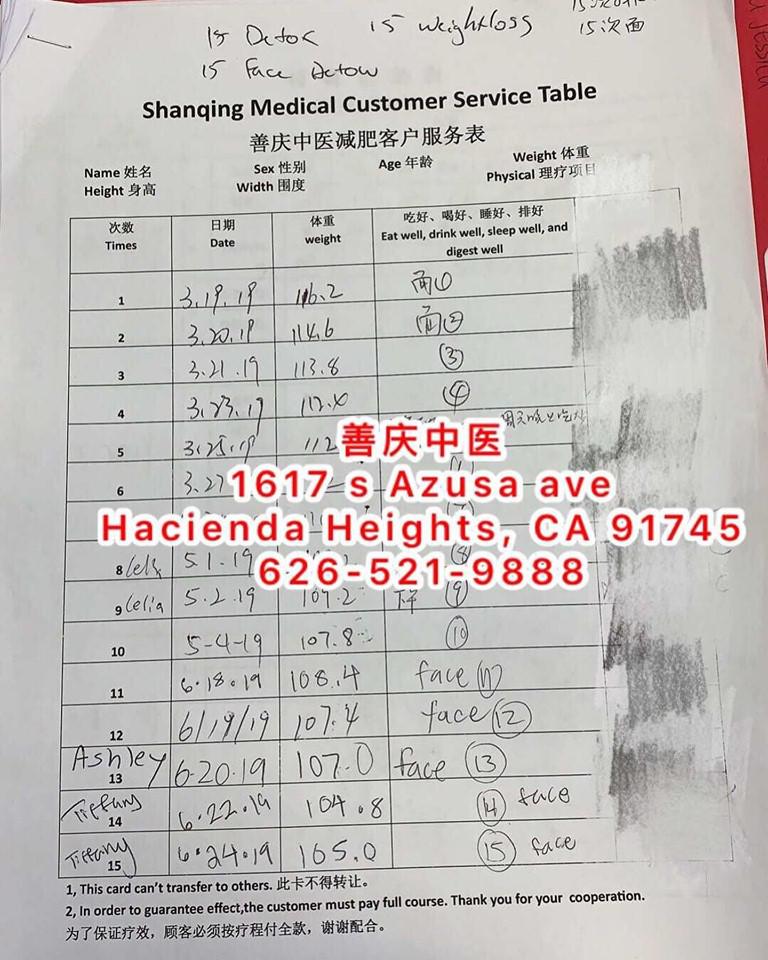 15 Detox 15 weightloss
15次面
15 Face Detow
Shanqing Medical Customer Service Table
善庆中医减肥客户服务表
Name 姓名 Sex 性别 Age 年龄 Weight 体重
Height 身高 Width 围度 Physical 理疗项目
次数 日期 体重 吃好、喝好、睡好、排好
Times Date weight Eat well, drink well, sleep well, and digest well
1 3.19.19 116.2 面①
2 3.20.19 114.6 面②
3 3.21.19 113.8 ③
4 3.23.19 112.4 ④
5 3.25.19 112
善庆中医
6 3.27
1617 s Azusa ave
Hacienda Heights, CA 91745
8 5.1.19 ⑧
626-521-9888
9 Celia 5.2.19 107.2 ⑨
10 5-4-19 107.8 ⑩
11 6.18.19 108.4 face ⑪
12 6/19/19 107.4 face ⑫
Ashley 13 6.20.19 107.0 face ⑬
Tiffany 14 6.22.19 104.8 ⑭ face
Tiffany 15 6.24.19 105.0 ⑮ face
1, This card can't transfer to others. 此卡不得转让。
2, In order to guarantee effect,the customer must pay full course. Thank you for your cooperation.
为了保证疗效，顾客必须按疗程付全款，谢谢配合。